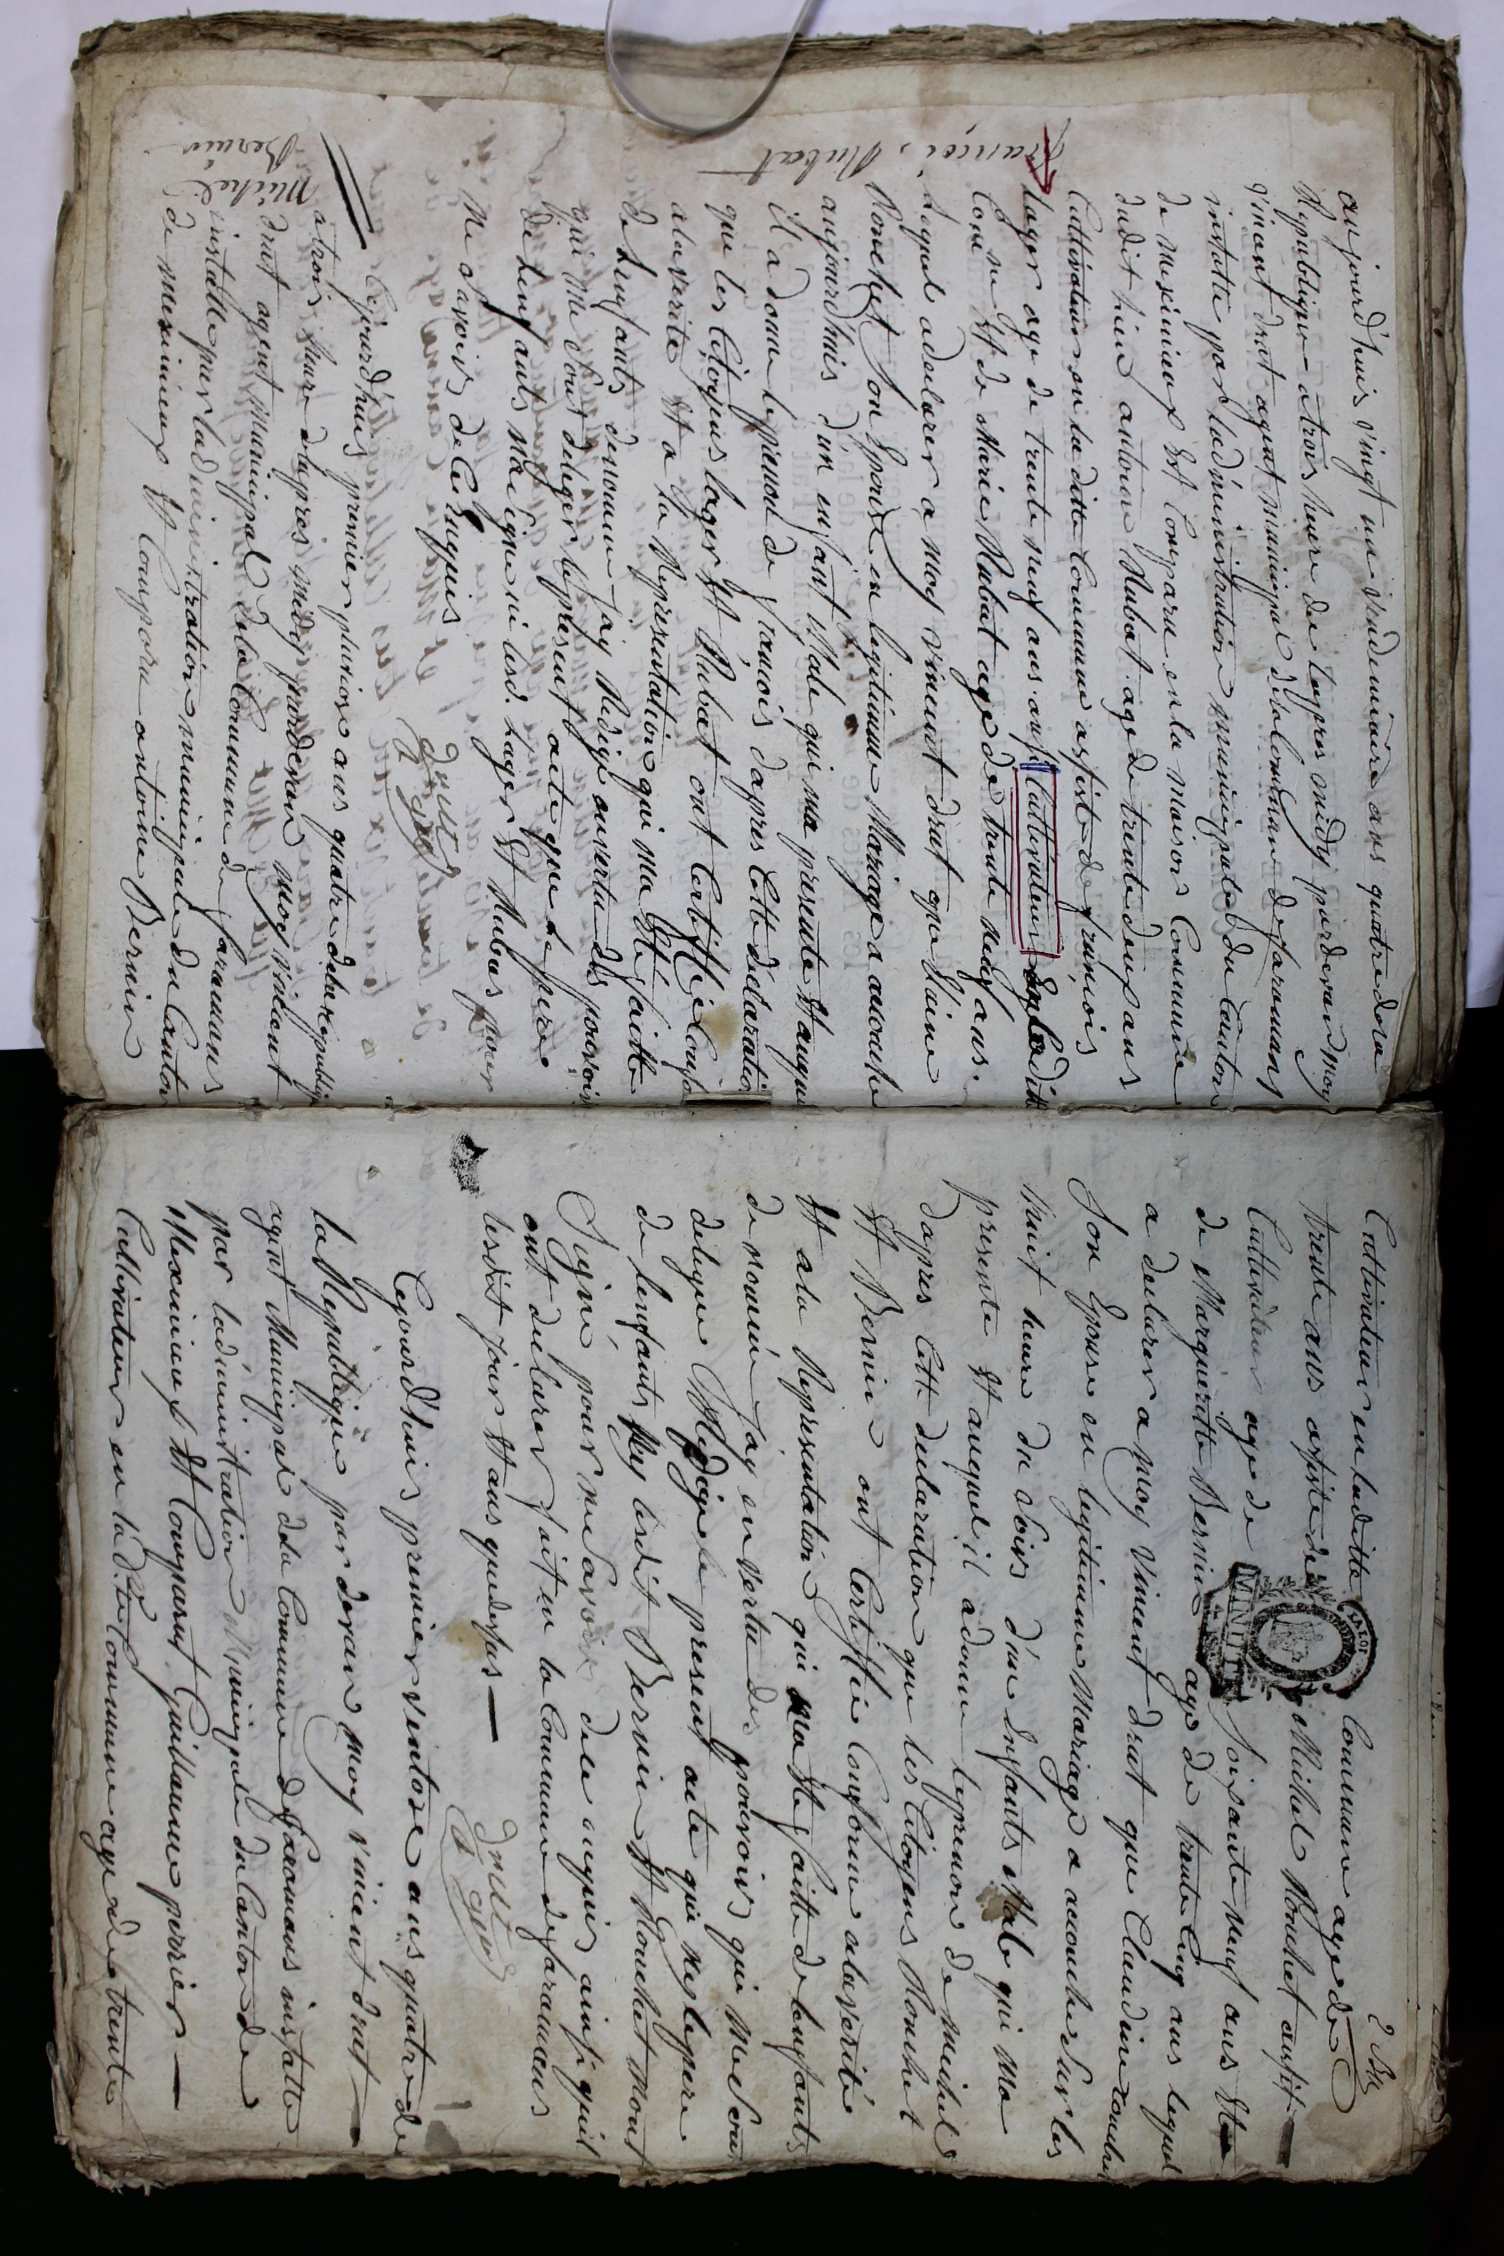 aujourd'huis vingt un vendemiaire ans quatre dela
Republique a trois heure de lapres midy pardevan moy
vincent drut agent municipal dela Commune de faramans
instalté par ladministration municipale du Canton
de meximieux Est Comparu en la maison Commune
dudit lieu antoine Rubat age de trente deux ans
Cultivateur en la ditte Commune assisté de françois
Lager age de trente neuf ans ausi Cultivateur En la ditte
Comune Et de Marie Rubat age de trente neuf ans
Lequel a declarer a moy vincent drut que
Ronchet son Epouse en legitime Mariage a accouche
aujourd'huis d'un enfant Male qui ma presente Et auquel
il a donne le prenon de francois dapres Cette declaration
que les Citoyens lager Et Rubat ont Certiffie Conforme
a la verite Et a la Representation qui ma Eté faitte
de lenfants denomme jay Redige en vertu des pouvoirs
qui me sont deleger le present acte que le pere
de lenfants na signe ni lesd. Lager Et Rubat pour
ne savoir de Ce Requis
drut
agent
françois Rubat
Cejourd'huis premier pluviose ans quatre dela republique
a trois heure dapres midy pardevan moy vincent
drut agent municipal dela Commune de faramans
instalté par ladministration municipale du Canton
de meximieux Et Comparu antoine Bernin
michel
Bernin
2
Cultivateur en laditte Commune age de
trente ans assiste de Michel Ronchet ausit
Cultivateur age de soixante neuf ans Et
de Margueritte Bernin age de trente Cinq ans lequel
a declarer a moy vincent drut que Claudine ronchet
son Epouse en legitime Mariage a accouche sur les
huit heure du soirs d'un Enfants Male qui ma
presente Et auquel il a donne le prenon de michel
dapres Cette declaration que les Citoyens Ronchet
Et Bernin ont Certiffie Conforme a la verité
Et a la Representation qui ma Ete faitte de lenfants
denommé jay en vertu des pouvoirs qui me sont
delegue Redige le present acte que le pere
de lenfants ny lesdit Bernin Et Ronchet n'ont
Signé pour ne savoir de ce requis ainsi quil
ont declarer fait en la Commune de faramans
lesdit jour Et ans que dessus
drut
agent
LA LOI
Cejourd'huis premier ventose ans quatre de
la Republique par devan moy vincent drut
agent Municipal dela Commune de faramans instalte
par ladministration Municipale du Canton de
Meximieux Et Comparut Guillaume perrier
Cultivateur en la d.te Commune age de trente